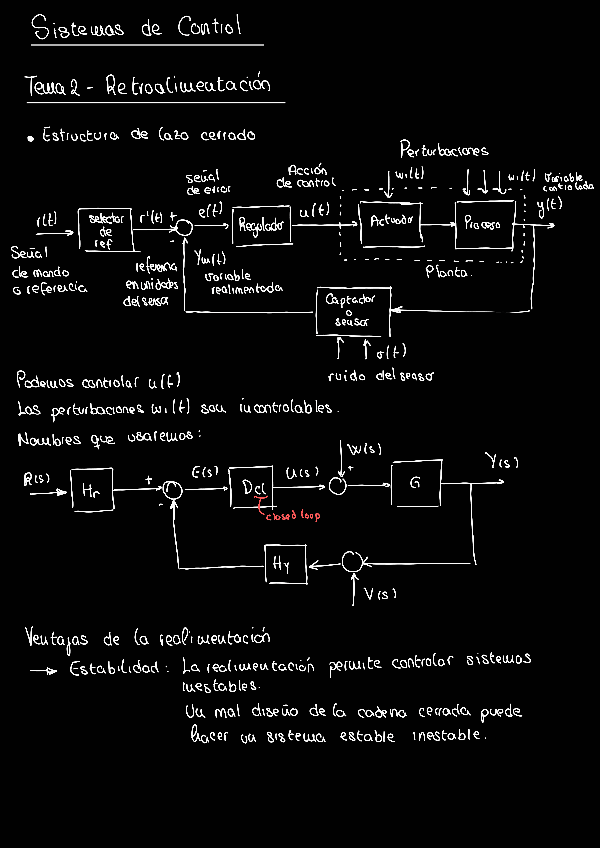 Sistemas de Control
Tema 2 - Retroalimentación
• Estructura de lazo cerrado
Perturbaciones
señal
de error
Acción
de control
wi(t)
wi(t)
Variable
controlada
r(t)
selector
de
ref
r'(t)
+
-
e(t)
Regulador
u(t)
Actuador
Proceso
y(t)
Señal
de mando
o referencia
referencia
en unidades
del sensor
Ym(t)
variable
realimentada
Planta.
Captador
o
sensor
σ(t)
ruido del sensor
Podemos controlar u(t)
Las perturbaciones wi(t) son incontrolables.
Nombres que usaremos:
R(s)
Hr
+
-
E(s)
Dcl
closed loop
U(s)
W(s)
+
G
Y(s)
Hy
V(s)
Ventajas de la realimentación
→ Estabilidad: La realimentación permite controlar sistemas
inestables.
Un mal diseño de la cadena cerrada puede
hacer un sistema estable inestable.